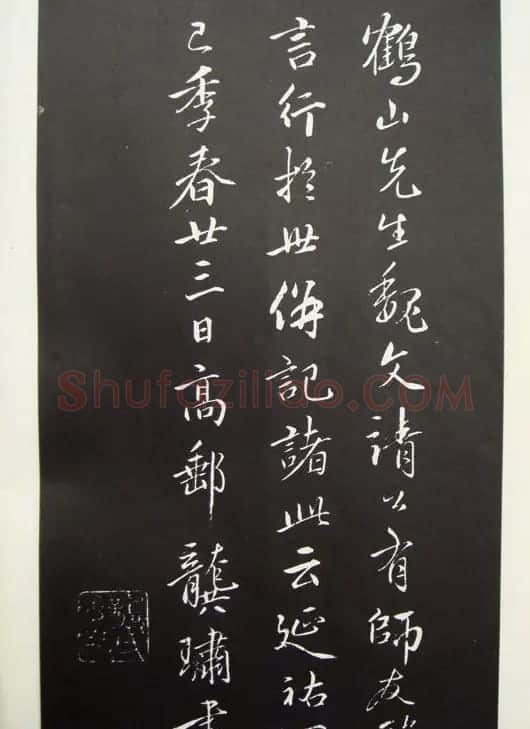 鶴山先生魏文靖公有師友
言行於世併記諸此云延祐
巳季春廿三日高郵龔璛書
Shufaziliao.COM